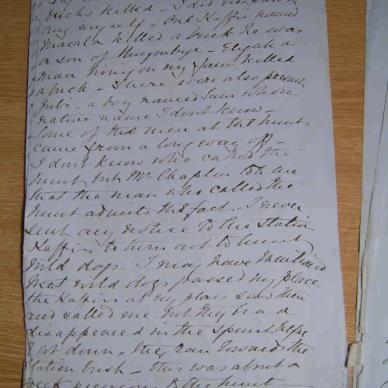 bucks killed - I did not
any myself - One Kaffir named
killed a buck he was
a son of - Elijah a
man living on my farm killed
a buck - There were also present
- a boy named Sam whose
native name I dont know -
Some of the men at the hunt
came from a long way off -
I dont know who called the
hunt but Mr Chaplin tells me
that the man who called the
hunt admits the fact - I never
sent any notice to the Station
Kaffirs to turn out to hunt
wild dogs. I may have mentioned
that wild dogs passed my place
the Kaffirs at my place saw them
and called me but they had
disappeared in the
I got down - they ran towards the
Station bush - this was about a
week previous to the hunt